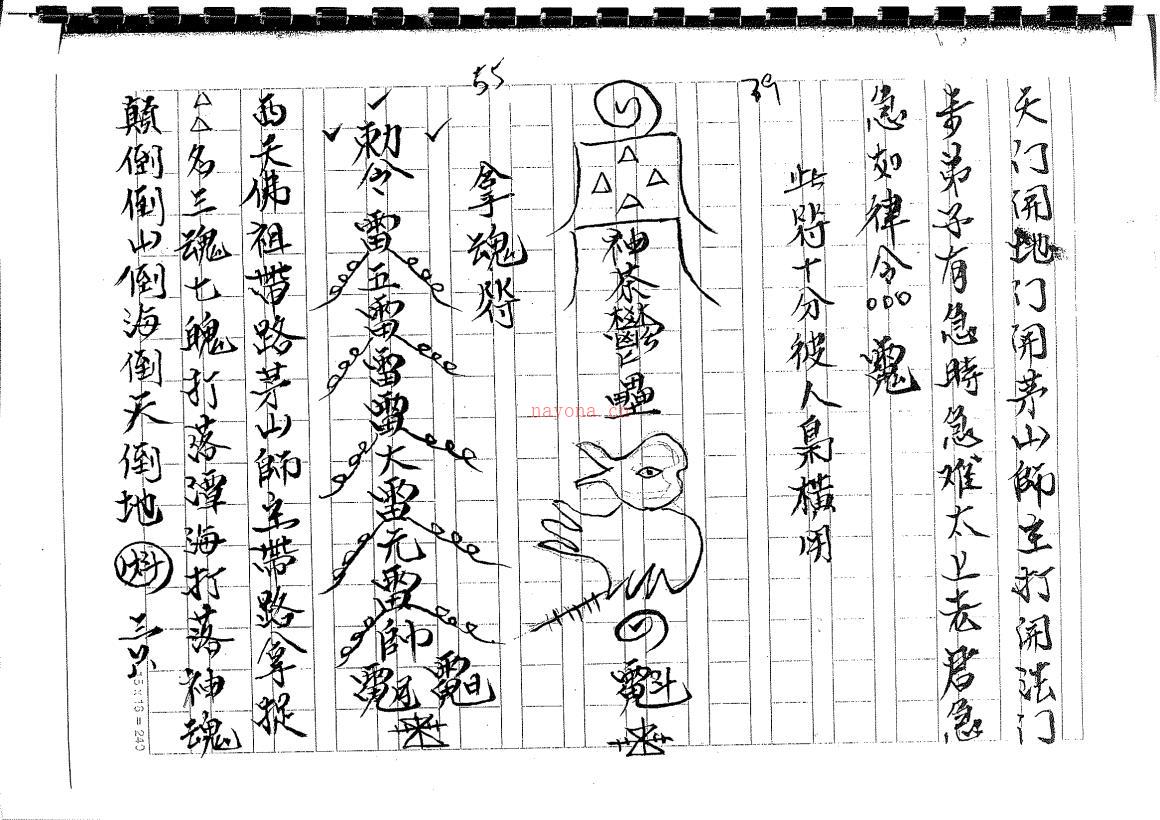 天门開地门開茅山師主打開法门
弟子有急時急难太上老君急
急如律令
39
此符十分彼人梟橫用
神荼鬱壘
55
拿魂符
勅令雷五雷雷雷大雷元雷帥
西天佛祖帶路茅山師主帶路拿捉
△△名三魂七魄打落潭海打落神魂
顛倒倒山倒海倒天倒地
15×16=240
nayona.cn